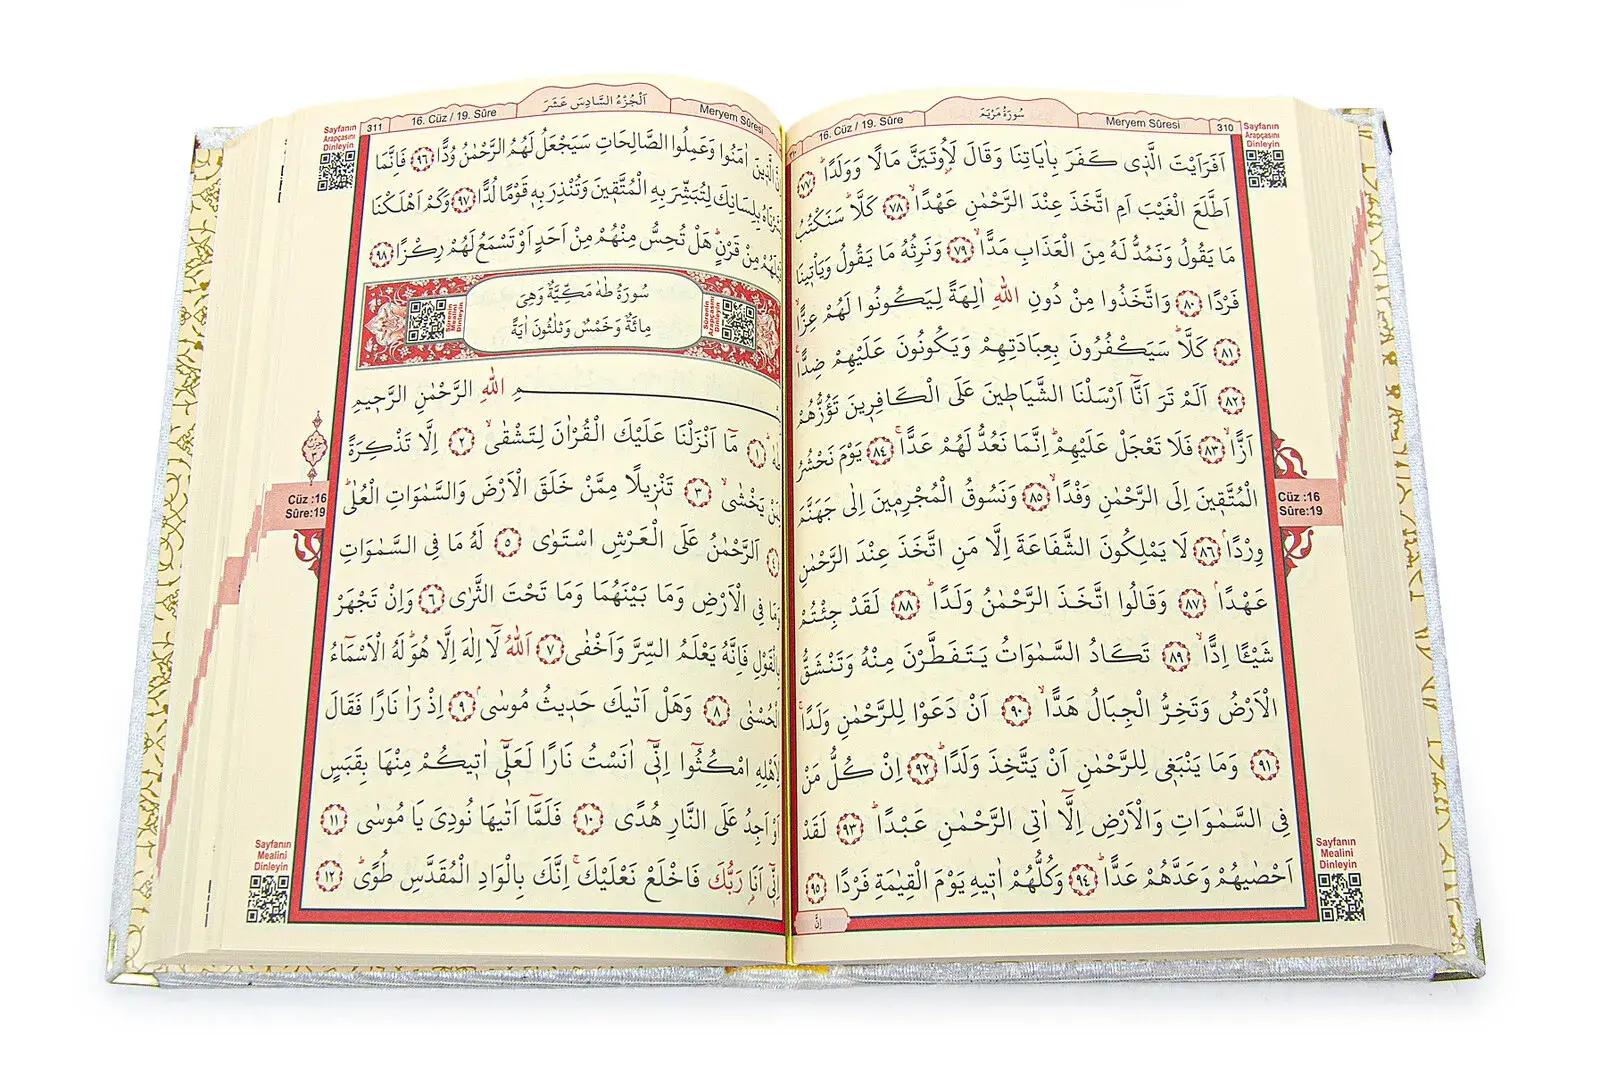 الصفحة
310
Meryem Sûresi
سُورَةُ مَرْيَمَ
16. Cüz / 19. Sûre
Sayfanın
Arapçasını
Dinleyin
اَفَرَاَيْتَ الَّذ۪ي كَفَرَ بِاٰيَاتِنَا وَقَالَ لَاُو۫تَيَنَّ مَالًا وَوَلَدًاۜ ﴿٧٧﴾
اَطَّلَعَ الْغَيْبَ اَمِ اتَّخَذَ عِنْدَ الرَّحْمٰنِ عَهْدًاۙ ﴿٧٨﴾ كَلَّاۜ سَنَكْتُبُ
مَا يَقُولُ وَنَمُدُّ لَهُ مِنَ الْعَذَابِ مَدًّاۙ ﴿٧٩﴾ وَنَرِثُهُ مَا يَقُولُ وَيَأْت۪ينَا
فَرْدًا ﴿٨٠﴾ وَاتَّخَذُوا مِنْ دُونِ اللّٰهِ اٰلِهَةً لِيَكُونُوا لَهُمْ عِزًّاۙ
﴿٨١﴾ كَلَّاۜ سَيَكْفُرُونَ بِعِبَادَتِهِمْ وَيَكُونُونَ عَلَيْهِمْ ضِدًّا۟
﴿٨٢﴾ اَلَمْ تَرَ اَنَّٓا اَرْسَلْنَا الشَّيَاط۪ينَ عَلَى الْكَافِر۪ينَ تَؤُزُّهُمْ
اَزًّاۙ ﴿٨٣﴾ فَلَا تَعْجَلْ عَلَيْهِمْۜ اِنَّمَا نَعُدُّ لَهُمْ عَدًّاۚ ﴿٨٤﴾ يَوْمَ نَحْشُرُ
الْمُتَّق۪ينَ اِلَى الرَّحْمٰنِ وَفْدًاۙ ﴿٨٥﴾ وَنَسُوقُ الْمُجْرِم۪ينَ اِلٰى جَهَنَّمَ
وِرْدًاۢ ﴿٨٦﴾ لَا يَمْلِكُونَ الشَّفَاعَةَ اِلَّا مَنِ اتَّخَذَ عِنْدَ الرَّحْمٰنِ
عَهْدًاۢ ﴿٨٧﴾ وَقَالُوا اتَّخَذَ الرَّحْمٰنُ وَلَدًاۜ ﴿٨٨﴾ لَقَدْ جِئْتُمْ
شَيْـًٔا اِدًّاۙ ﴿٨٩﴾ تَكَادُ السَّمٰوَاتُ يَتَفَطَّرْنَ مِنْهُ وَتَنْشَقُّ
الْاَرْضُ وَتَخِرُّ الْجِبَالُ هَدًّاۙ ﴿٩٠﴾ اَنْ دَعَوْا لِلرَّحْمٰنِ وَلَدًاۚ
﴿٩١﴾ وَمَا يَنْبَغ۪ي لِلرَّحْمٰنِ اَنْ يَتَّخِذَ وَلَدًاۜ ﴿٩٢﴾ اِنْ كُلُّ مَنْ
فِي السَّمٰوَاتِ وَالْاَرْضِ اِلَّٓا اٰتِي الرَّحْمٰنِ عَبْدًاۜ ﴿٩٣﴾ لَقَدْ
اَحْصٰيهُمْ وَعَدَّهُمْ عَدًّاۜ ﴿٩٤﴾ وَكُلُّهُمْ اٰت۪يهِ يَوْمَ الْقِيٰمَةِ فَرْدًا ﴿٩٥﴾
اِنَّ
Cüz :16
Sûre:19
Sayfanın
Mealini
Dinleyin
Meryem Sûresi
اَلْجُزْءُ السَّادِسَ عَشَرَ
16. Cüz / 19. Sûre
311
Sayfanın
Arapçasını
Dinleyin
الَّذ۪ينَ اٰمَنُوا وَعَمِلُوا الصَّالِحَاتِ سَيَجْعَلُ لَهُمُ الرَّحْمٰنُ وُدًّا ﴿٩٦﴾ فَاِنَّمَا
بِلِسَانِكَ لِتُبَشِّرَ بِهِ الْمُتَّق۪ينَ وَتُنْذِرَ بِه۪ قَوْمًا لُدًّا ﴿٩٧﴾ وَكَمْ اَهْلَكْنَا
مِنْ قَرْنٍۜ هَلْ تُحِسُّ مِنْهُمْ مِنْ اَحَدٍ اَوْ تَسْمَعُ لَهُمْ رِكْزًا ﴿٩٨﴾
سُورَةُ طٰهٰ مَكِّيَّةٌ وَهِيَ
مِائَةٌ وَخَمْسٌ وَثَلٰثُونَ اٰيَةً
Sûrenin
Arapçasını
Dinleyin
Sûrenin
Mealini
Dinleyin
ـمِ اللّٰهِ الرَّحْمٰنِ الرَّح۪يمِ
﴿١﴾ مَٓا اَنْزَلْنَا عَلَيْكَ الْقُرْاٰنَ لِتَشْقٰىۙ ﴿٢﴾ اِلَّا تَذْكِرَةً
يَخْشٰىۙ ﴿٣﴾ تَنْز۪يلًا مِمَّنْ خَلَقَ الْاَرْضَ وَالسَّمٰوَاتِ الْعُلٰىۜ
﴿٤﴾ اَلرَّحْمٰنُ عَلَى الْعَرْشِ اسْتَوٰى ﴿٥﴾ لَهُ مَا فِي السَّمٰوَاتِ
وَمَا فِي الْاَرْضِ وَمَا بَيْنَهُمَا وَمَا تَحْتَ الثَّرٰى ﴿٦﴾ وَاِنْ تَجْهَرْ
بِالْقَوْلِ فَاِنَّهُ يَعْلَمُ السِّرَّ وَاَخْفٰى ﴿٧﴾ اَللّٰهُ لَٓا اِلٰهَ اِلَّا هُوَۜ لَهُ الْاَسْمَٓاءُ
الْحُسْنٰى ﴿٨﴾ وَهَلْ اَتٰيكَ حَد۪يثُ مُوسٰىۢ ﴿٩﴾ اِذْ رَاٰ نَارًا فَقَالَ
لِاَهْلِهِ امْكُثُٓوا اِنّ۪ٓي اٰنَسْتُ نَارًا لَعَلّ۪ٓي اٰت۪يكُمْ مِنْهَا بِقَبَسٍ
اَوْ اَجِدُ عَلَى النَّارِ هُدًى ﴿١٠﴾ فَلَمَّٓا اَتٰيهَا نُودِيَ يَا مُوسٰى ﴿١١﴾
اِنّ۪ٓي اَنَا۬ رَبُّكَ فَاخْلَعْ نَعْلَيْكَۚ اِنَّكَ بِالْوَادِ الْمُقَدَّسِ طُوًىۜ ﴿١٢﴾
Cüz :16
Sûre:19
Sayfanın
Mealini
Dinleyin